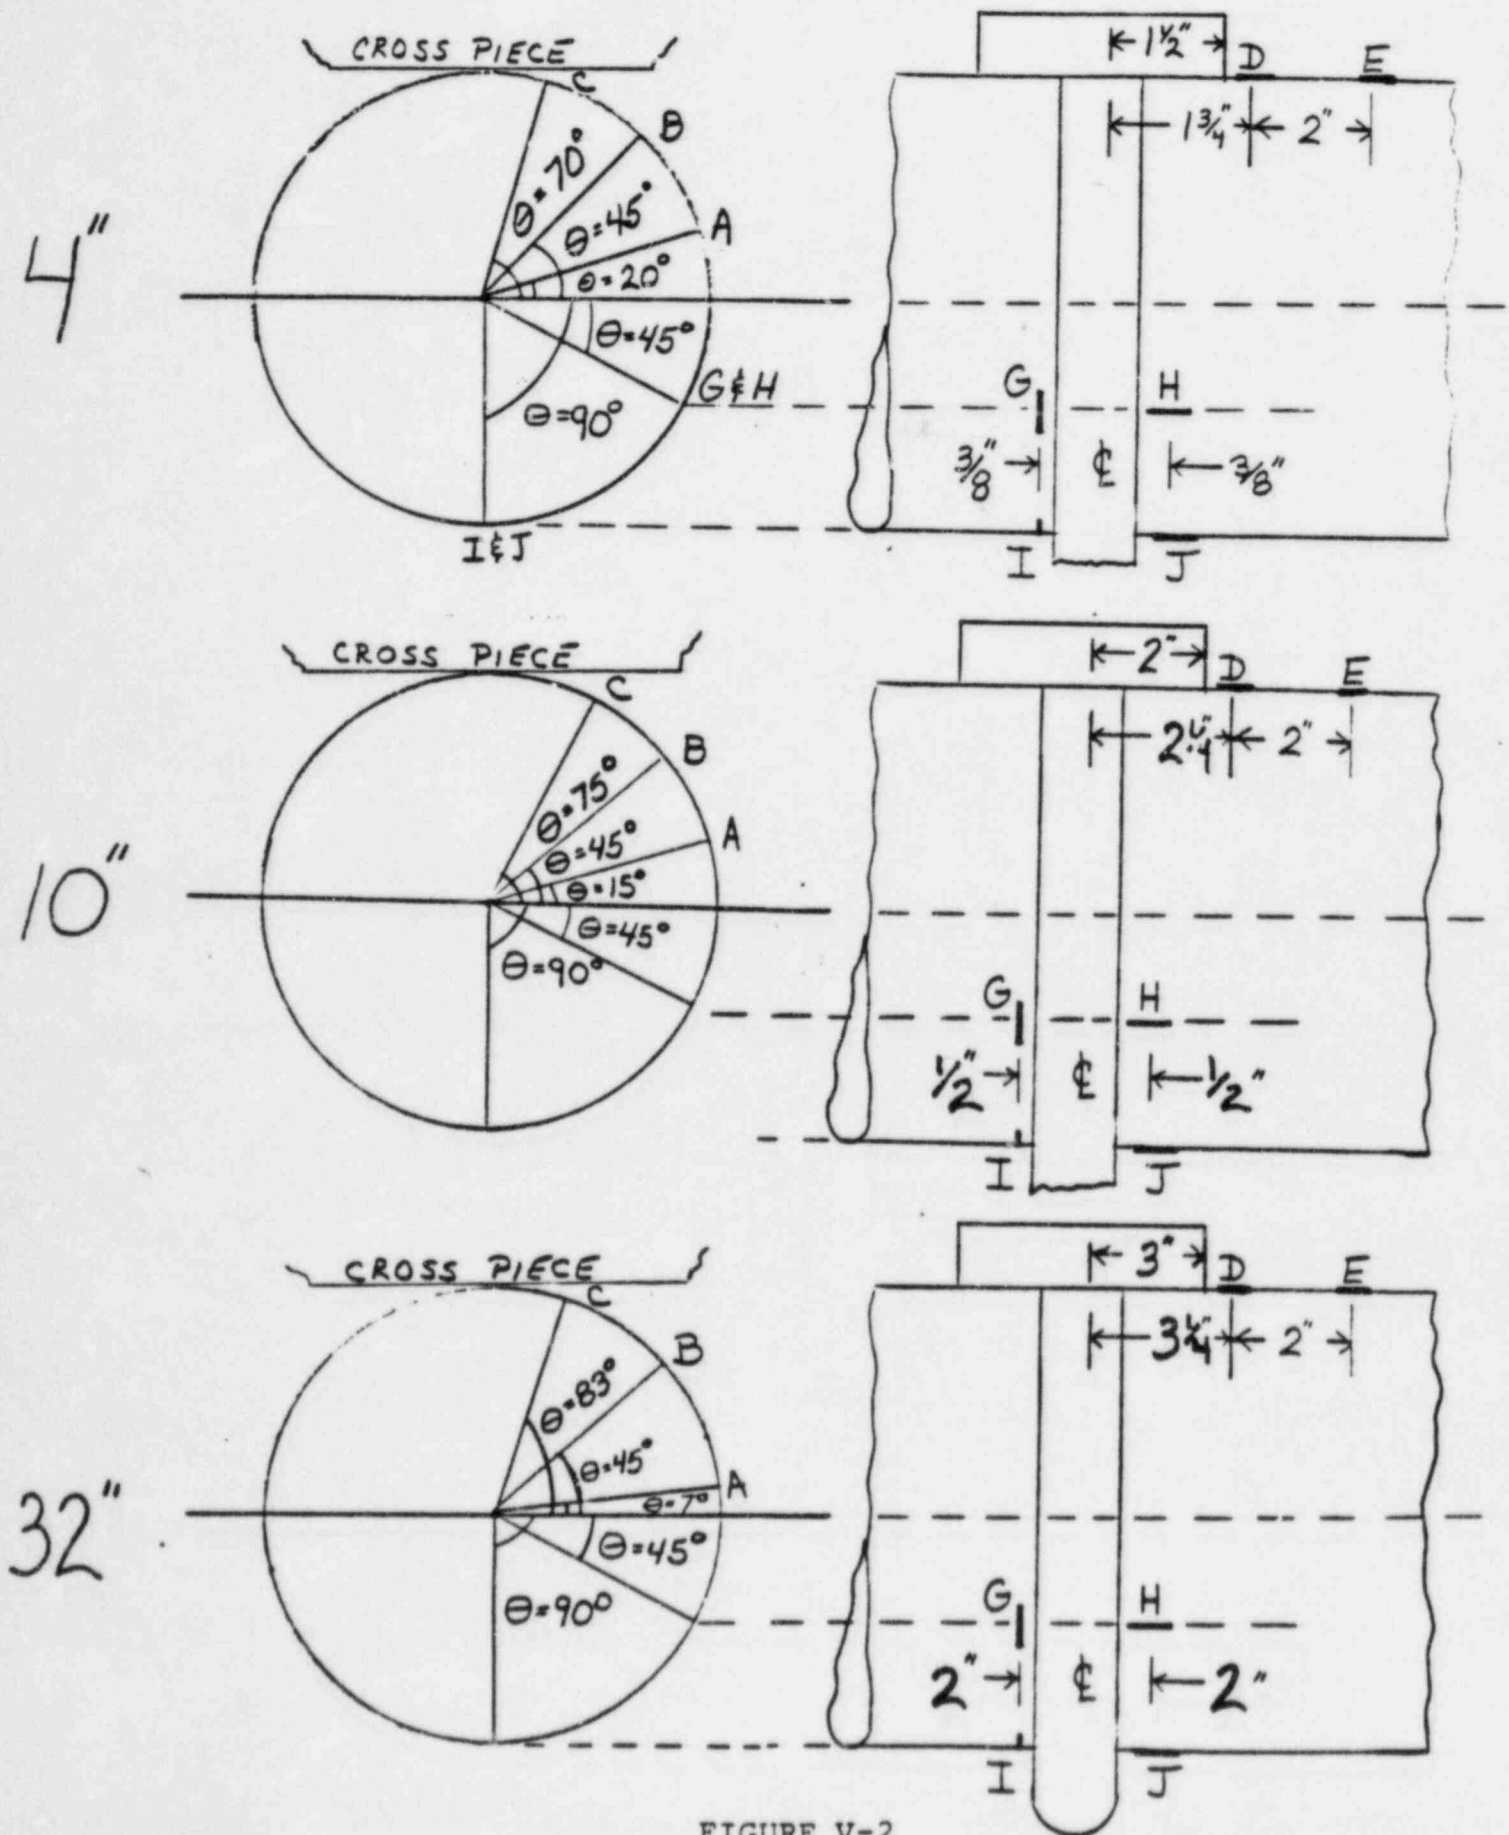 4"
CROSS PIECE
C
B
A
θ=70°
θ=45°
θ=20°
θ=45°
θ=90°
G&H
I&J
1½"
D
E
1¾"
2"
G
H
3/8"
℄
3/8"
I
J
10"
CROSS PIECE
C
B
A
θ=75°
θ=45°
θ=15°
θ=45°
θ=90°
2"
D
E
2¼"
2"
G
H
1/2"
℄
1/2"
I
J
32"
CROSS PIECE
C
B
A
θ=83°
θ=45°
θ=7°
θ=45°
θ=90°
3"
D
E
3¼"
2"
G
H
2"
℄
2"
I
J
FIGURE V-2